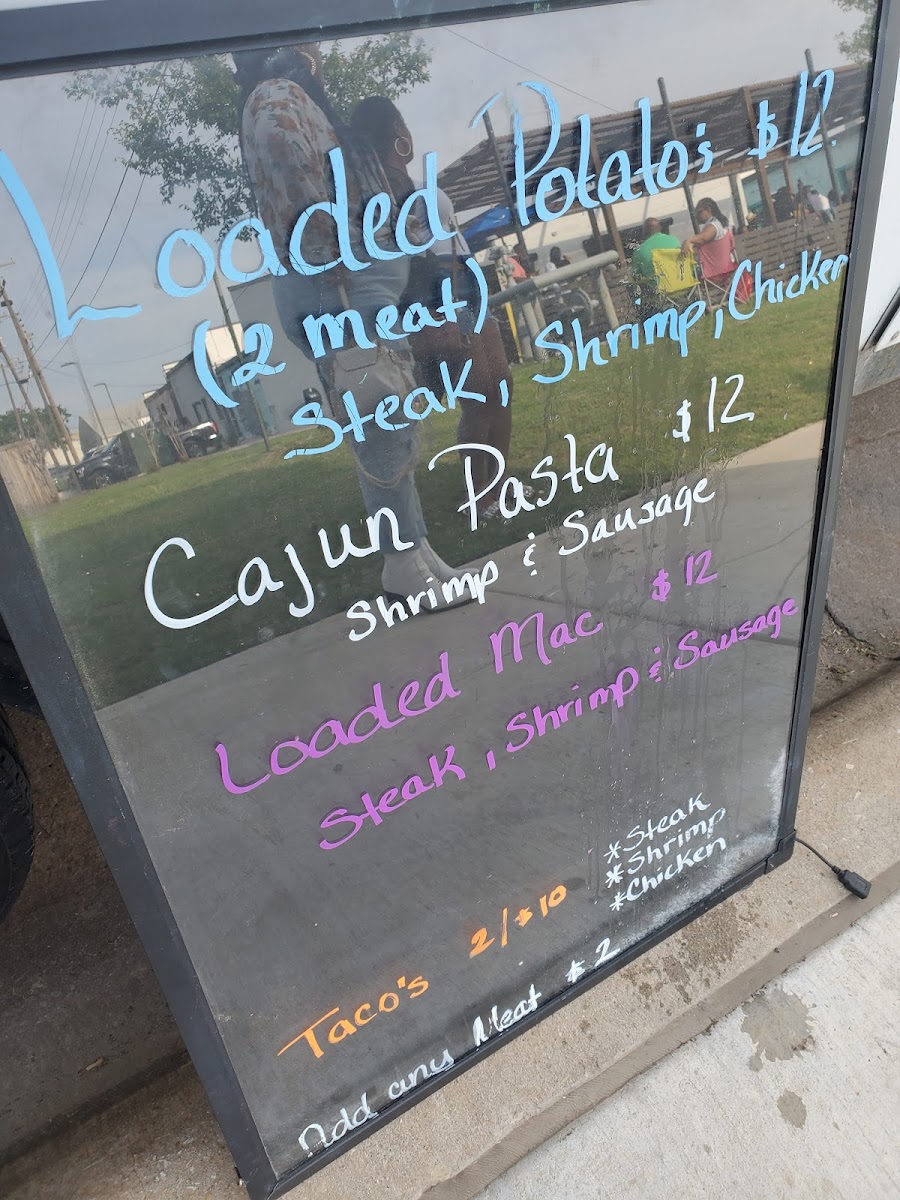 Loaded Potato's $12
(2 meat)
Steak, Shrimp, Chicken
Cajun Pasta $12
Shrimp & Sausage
Loaded Mac $12
Steak, Shrimp & Sausage
*Steak
*Shrimp
*Chicken
Taco's 2/$10
Add any Meat $2